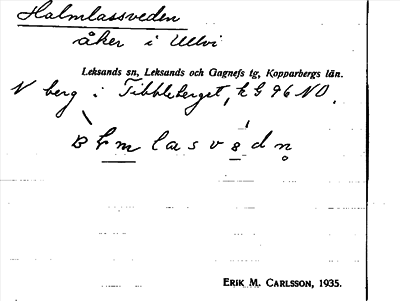 Halmlassveden
åker i Ullvi
Leksands sn, Leksands och Gagnefs tg, Kopparbergs län.
N berg i Tibbleberget, k G 96 NO.
lasv dn
ERIK M. CARLSSON, 1935.